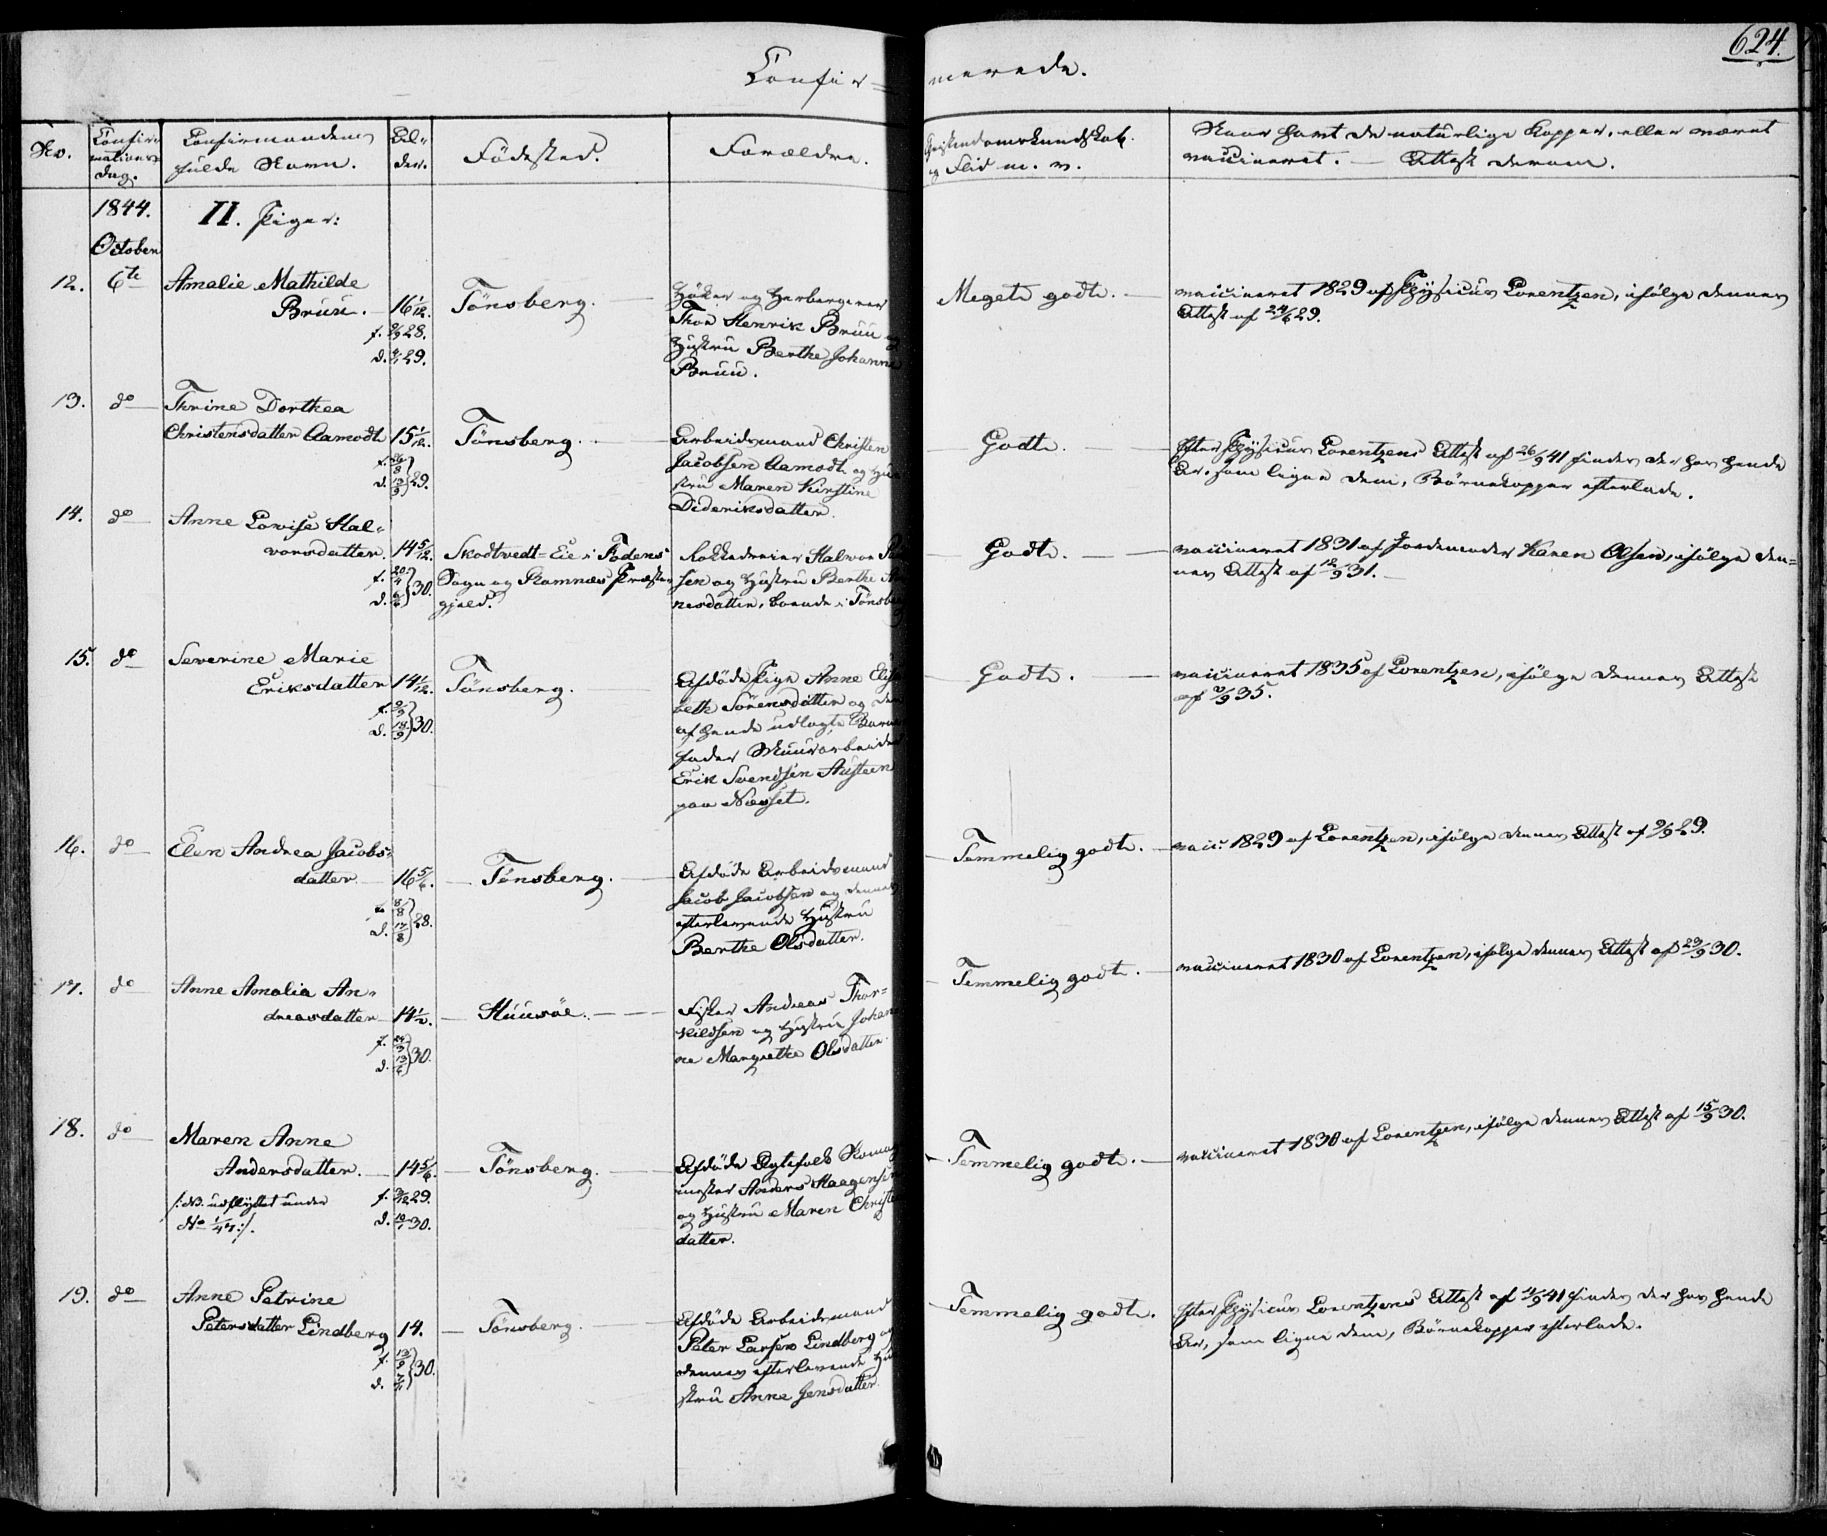 624.
Confir=merede.
No.
Confir=
mations
dag.
Confirmandens
fulde Navn.
Al=
der.
Födested.
Forældre.
Christendomskundskab.
og Flid m. v.
Naar havt de naturlige Kopper, eller været
vaccineret. — Attest derom.
1844.
October
II. Piger:
12. 6te Amalie Mathilde
Bruu. — 16 1/12.
f. 28.
d. 29.
Tönsberg. —
Höker og Herbergerer
Thor Henrik Bruu og
Hustru Berthe Johanne
Bruu.
Meget godt. —
vaccineret 1829 af Physicus Lorentzen, ifölge dennes
Attest af 24/6 29.
13. do — Thrine Dorthea
Christensdatter Aamodt 15 1/12.
f. 26/8
d. 13/9 } 29.
Tönsberg. —
Arbeidsmand Christen
Jacobsen Aamodt og Hu=
stru Maren Kirstine
Dideriksdatter.
Godt. —
Efter Physicus Lorentzens Attest af 26/9 41 findes der hos hende
Ar, som ligne dem, Börnekopper efterlade.
14. do — Anne Lovise Hal=
vorsdatter. 14 5/12.
f. 20/4
d. 6/6 } 30.
Skodtvedt=Eie i Fodens
Sogn og Ramnæs Præste=
gjeld.
Rokkedreier Halvor
sen og Hustru Berthe
nesdatter, boende i Tönsberg
Godt. —
vaccineret 1831 af Jordemoder Karen Olsen, ifölge den=
nes Attest af 12/9 31. —
15. do Severine Marie
Eriksdatter 14 1/12.
f. 2/9
d. 18/9 } 30.
Tönsberg. —
Afdöde Pige Anne Elisa
beth Sörensdatter og den
af hende udlagte Barne
fader Muurarbeider
Erik Svendsen Austeen
paa Næsset.
Godt. —
vaccineret 1835 af Lorentzen, ifölge dennes Attest
af 35.
16. do — Elen Andrea Jacobs=
datter — 16 5/6.
8/8
d. 17/8 } 28.
— Tönsberg. —
Afdöde Arbeidsmand
Jacob Jacobsen og dennes
efterlevende Hustru
Berthe Olsdatter.
— Temmelig godt. —
vacc. 1829 af Lorentzen, ifölge dennes Attest af 9/9 29.
17. do — Anne Amalia An=
dreasdatter — 14 1/2.
f.
d. 13/6 } 30.
— Huusöe. —
Fisker Andreas Thor=
kildsen og Hustru Johan
ne Margrethe Olsdatter.
— Temmelig godt. —
vaccineret 1830 af Lorentzen, ifölge dennes Attest af 23/9 30.
18. do — Maren Anne
Andersdatter. — 14 5/6.
/: NB. udflyttet under
No 1/47 :/.
f. 29.
d. 10/1 30.
— Tönsberg. —
Afdöde Ægtefolk Skomag
mester Anders Haagensen
og Hustru Maren Christens
datter.
— Temmelig godt. —
vaccineret 1830 af Lorentzen, ifölge dennes Attest af 15/9 30.
19. do — Anne Petrine
Petersdatter Lindberg 14.
f. 13/9
d. 30.
— Tönsberg. —
Afdöde Arbeidsmand
Peter Larsens Lindberg og
dennes efterlevende Hu
stru Anne Jensdatter.
— Temmelig godt. —
Efter Physicus Lorentzens Attest af 41 findes der hos hende
Ar, som ligne dem, Börnekopper efterlade.